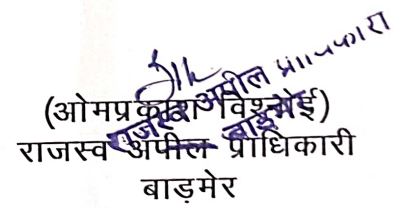 राजस्व अपील प्राधिकारी
बाड़मेर
(ओमप्रकाश विश्नोई)
राजस्व अपील प्राधिकारी
बाड़मेर